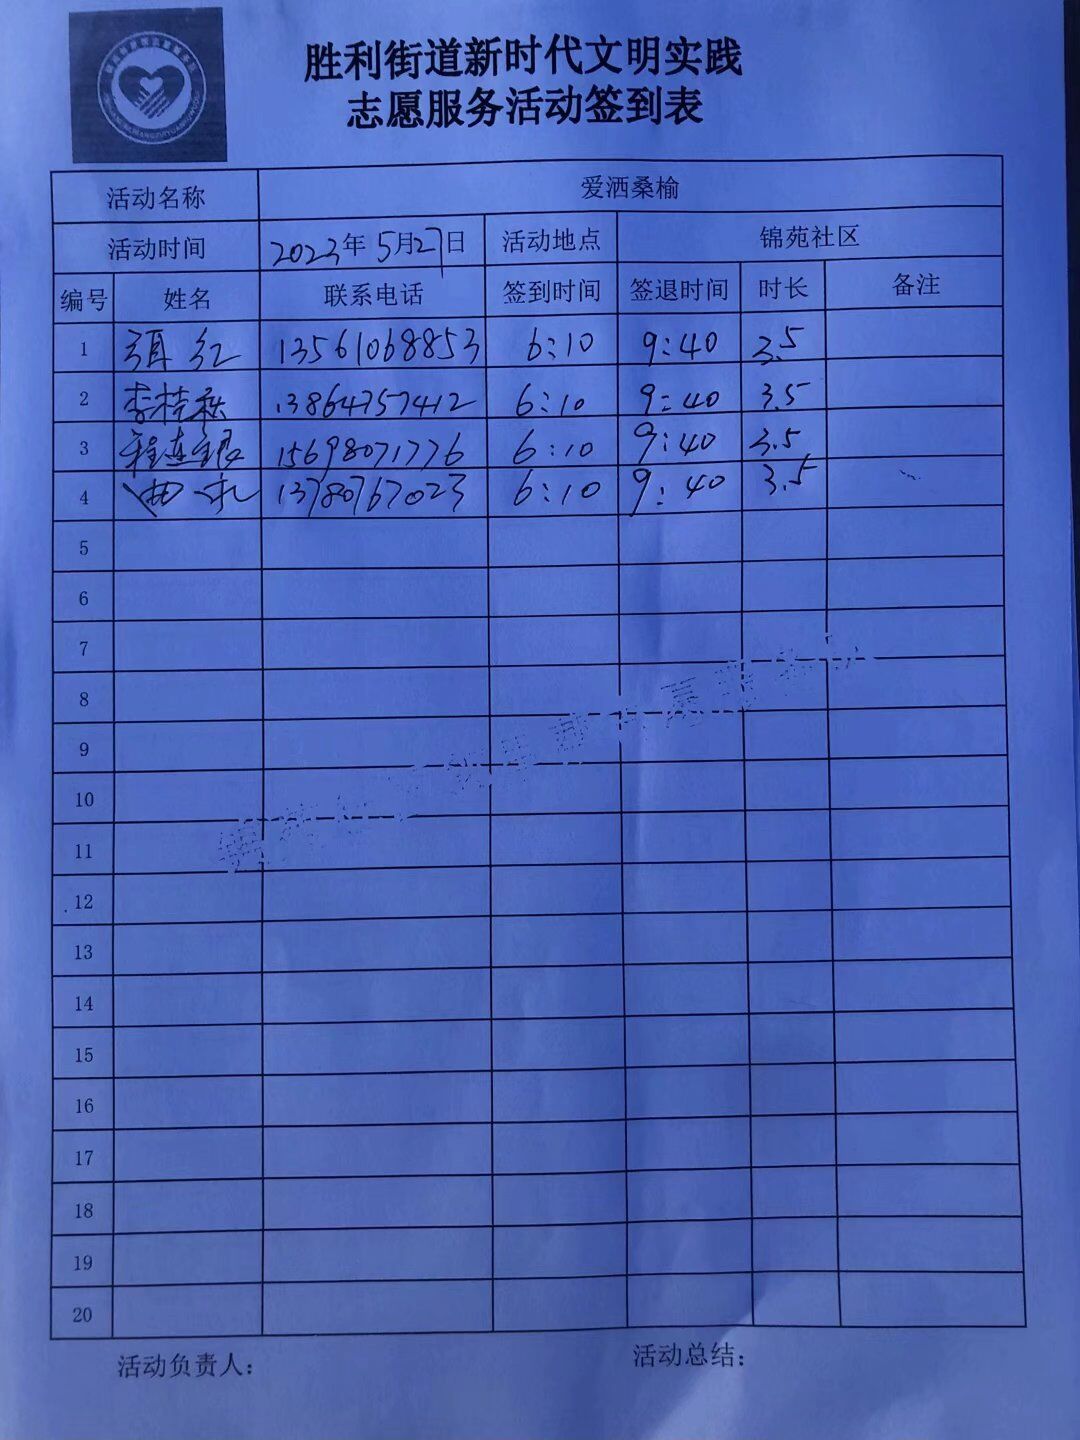 胜利街道新时代文明实践
志愿服务活动签到表
活动名称 爱洒桑榆
活动时间 2023年5月27日 活动地点 锦苑社区
编号 姓名 联系电话 签到时间 签退时间 时长 备注
1 红 13561068853 6:10 9:40 3.5
2 李桂秋 13864757412 6:10 9:40 3.5
3 程连银 15698071776 6:10 9:40 3.5
4 曲 13780767023 6:10 9:40 3.5
5
6
7
8
9
10
11
12
13
14
15
16
17
18
19
20
活动负责人： 活动总结：